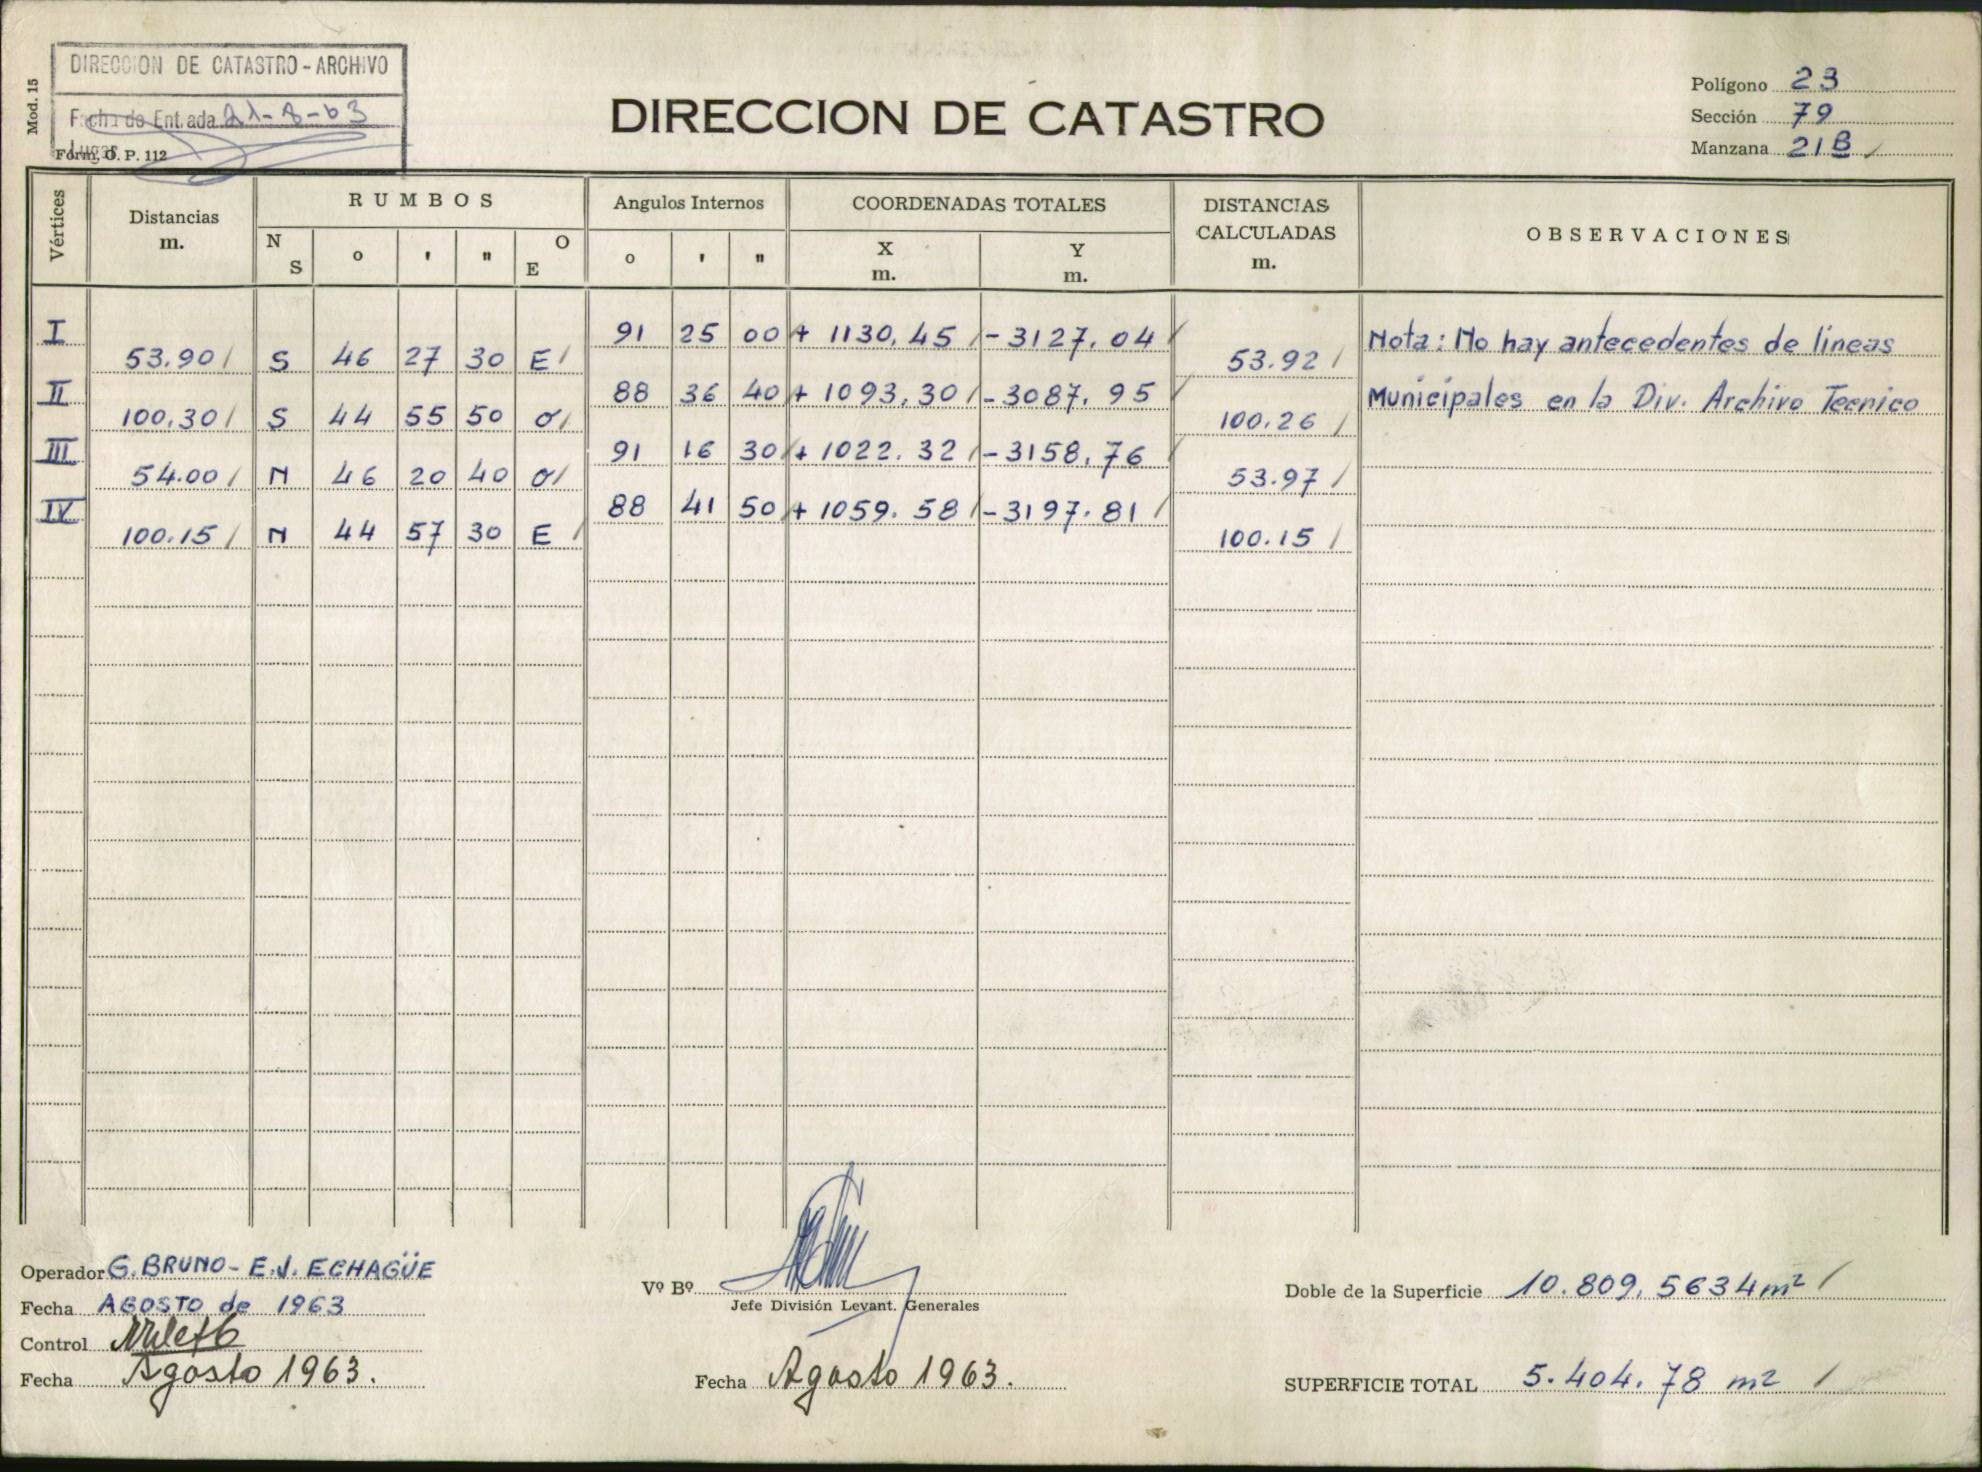 Mod. 15
DIRECCION DE CATASTRO - ARCHIVO
Fecha de Entrada 21-8-63
Lugar
Form. O. P. 112
DIRECCION DE CATASTRO
Polígono 23
Sección 79
Manzana 21B
Vértices
Distancias
m.
RUMBOS
N S
o
'
"
O E
Angulos Internos
o ' "
COORDENADAS TOTALES
X
m.
Y
m.
DISTANCIAS
CALCULADAS
m.
OBSERVACIONES
I 91 25 00 + 1130,45 - 3127,04
53.90 S 46 27 30 E 53.92
II 88 36 40 + 1093,30 - 3087,95
100,30 S 44 55 50 O 100.26
III 91 16 30 + 1022.32 - 3158,76
54.00 N 46 20 40 O 53.97
IV 88 41 50 + 1059.58 - 3197.81
100.15 N 44 57 30 E 100.15
Nota: No hay antecedentes de lineas
Municipales en la Div. Archivo Tecnico
Operador G. BRUNO - E.J. ECHAGÜE
Fecha AGOSTO de 1963
Control
Fecha Agosto 1963.
Vº Bº
Jefe División Levant. Generales
Fecha Agosto 1963.
Doble de la Superficie 10.809,5634 m2
SUPERFICIE TOTAL 5.404.78 m2